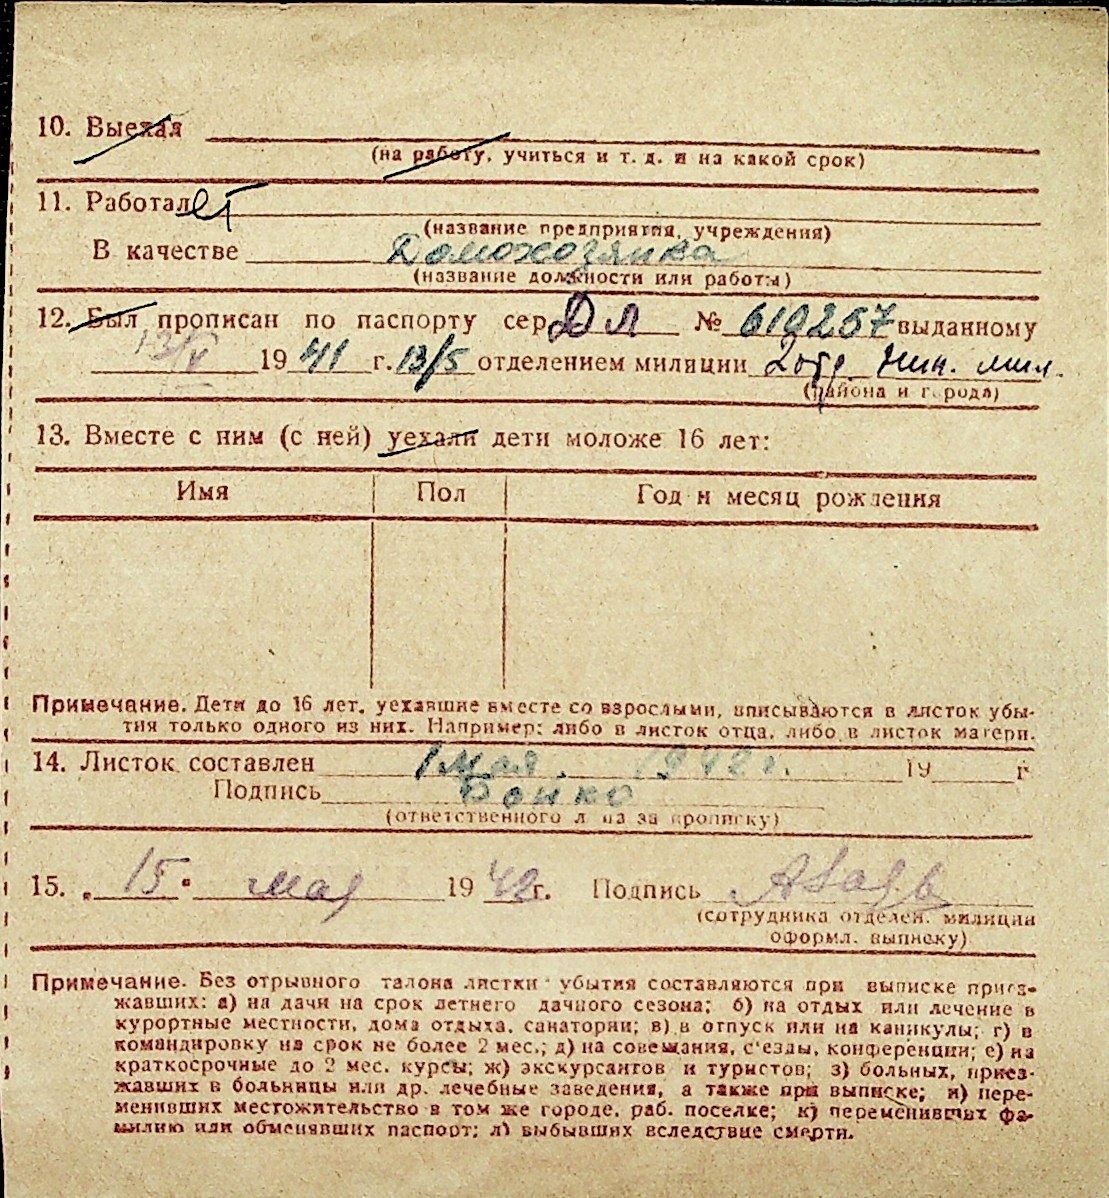 10. Выехал
(на работу, учиться и т. д. и на какой срок)
11. Работалет
(название предприятия, учреждения)
В качестве Домохозяика
(название должности или работы)
12. Был прописан по паспорту сер. ДЛ № 610257 выданному
13/V 1941 г. 13/5 отделением милиции 2 отд. Мин. мил.
(района и города)
13. Вместе с ним (с ней) уехали дети моложе 16 лет:
Имя Пол Год и месяц рождения
Примечание. Дети до 16 лет, уехавшие вместе со взрослыми, вписываются в листок убы-
тия только одного из них. Например: либо в листок отца, либо в листок матери.
14. Листок составлен 1 мая. 1942 г. 19 г
Подпись Бойко
(ответственного лица за прописку)
15. „15" мая 1942г. Подпись
(сотрудника отделен. милиции
оформл. выписку)
Примечание. Без отрывного талона листки убытия составляются при выписке приез-
жавших: а) на дачи на срок летнего дачного сезона; б) на отдых или лечение в
курортные местности, дома отдыха, санатории; в) в отпуск или на каникулы; г) в
командировку на срок не более 2 мес.; д) на совещания, с'езды, конференции; е) на
краткосрочные до 2 мес. курсы; ж) экскурсантов и туристов; з) больных, приез-
жавших в больницы или др. лечебные заведения, а также при выписке; и) пере-
менивших местожительство в том же городе, раб. поселке; к) переменивших фа-
милию или обменявших паспорт; л) выбывших вследствие смерти.